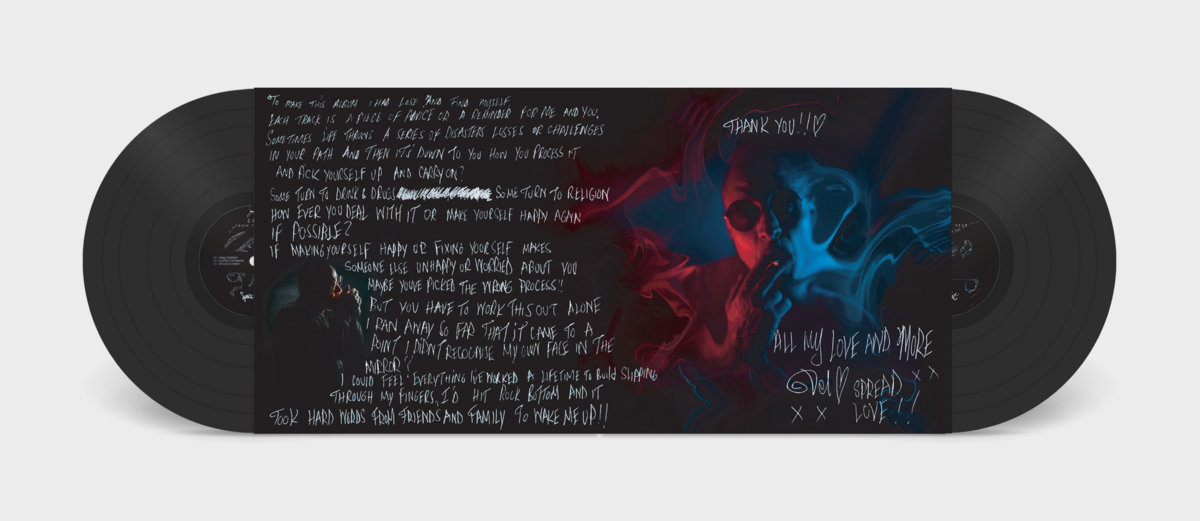 TO MAKE THIS ALBUM I HAD LOSE AND FIND MYSELF
EACH TRACK IS A PIECE OF ADVICE OR A REMINDER FOR ME AND YOU.
SOMETIMES LIFE THROWS A SERIES OF DISASTERS LOSSES OR CHALLENGES
IN YOUR PATH AND THEN IT'S DOWN TO YOU HOW YOU PROCESS IT
AND PICK YOURSELF UP AND CARRY ON?
SOME TURN TO DRINK & DRUGS SOME TURN TO RELIGION
HOW EVER YOU DEAL WITH IT OR MAKE YOURSELF HAPPY AGAIN
IF POSSIBLE?
IF MAKING YOURSELF HAPPY OR FIXING YOURSELF MAKES
SOMEONE ELSE UNHAPPY OR WORRIED ABOUT YOU
MAYBE YOU'VE PICKED THE WRONG PROCESS!
BUT YOU HAVE TO WORK THIS OUT ALONE
I RAN AWAY SO FAR THAT IT CAME TO A
POINT I DIDN'T RECOGNISE MY OWN FACE IN THE
MIRROR?
I COULD FEEL EVERYTHING I'VE WORKED A LIFETIME TO BUILD SLIPPING
THROUGH MY FINGERS, I'D HIT ROCK BOTTOM AND IT
TOOK HARD WORDS FROM FRIENDS AND FAMILY TO WAKE ME UP!!
THANK YOU!!♡
ALL MY LOVE AND MORE
X X
SPREAD
X X LOVE!!